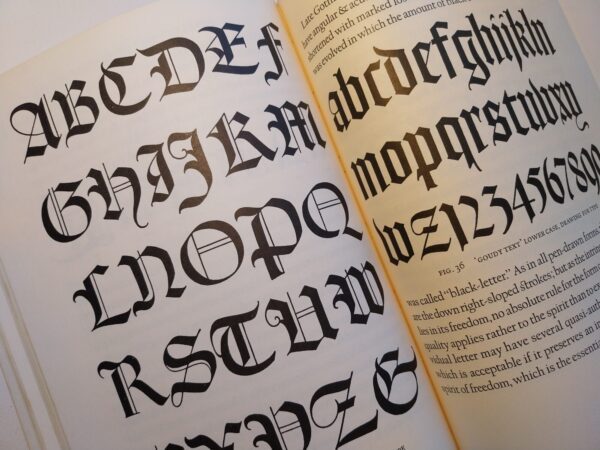 ABCDEF
GHIJKM
LNOPQ
RSTUW
XYZ
Late
have angular &
shortened with marked
was evolved in which the amount of black
abcdefghijkln
mopqrstuvxy
wz1234567890
FIG. 36 'GOUDY TEXT' LOWER CASE, DRAWING FOR TYPE
was called "black-letter." As in all pen-drawn forms
are the down right-sloped strokes; but as the
lies in its freedom, no absolute rule for the
quality applies rather to the spirit than to
vidual letter may have several
which is acceptable if it preserves an
spirit of freedom, which is the